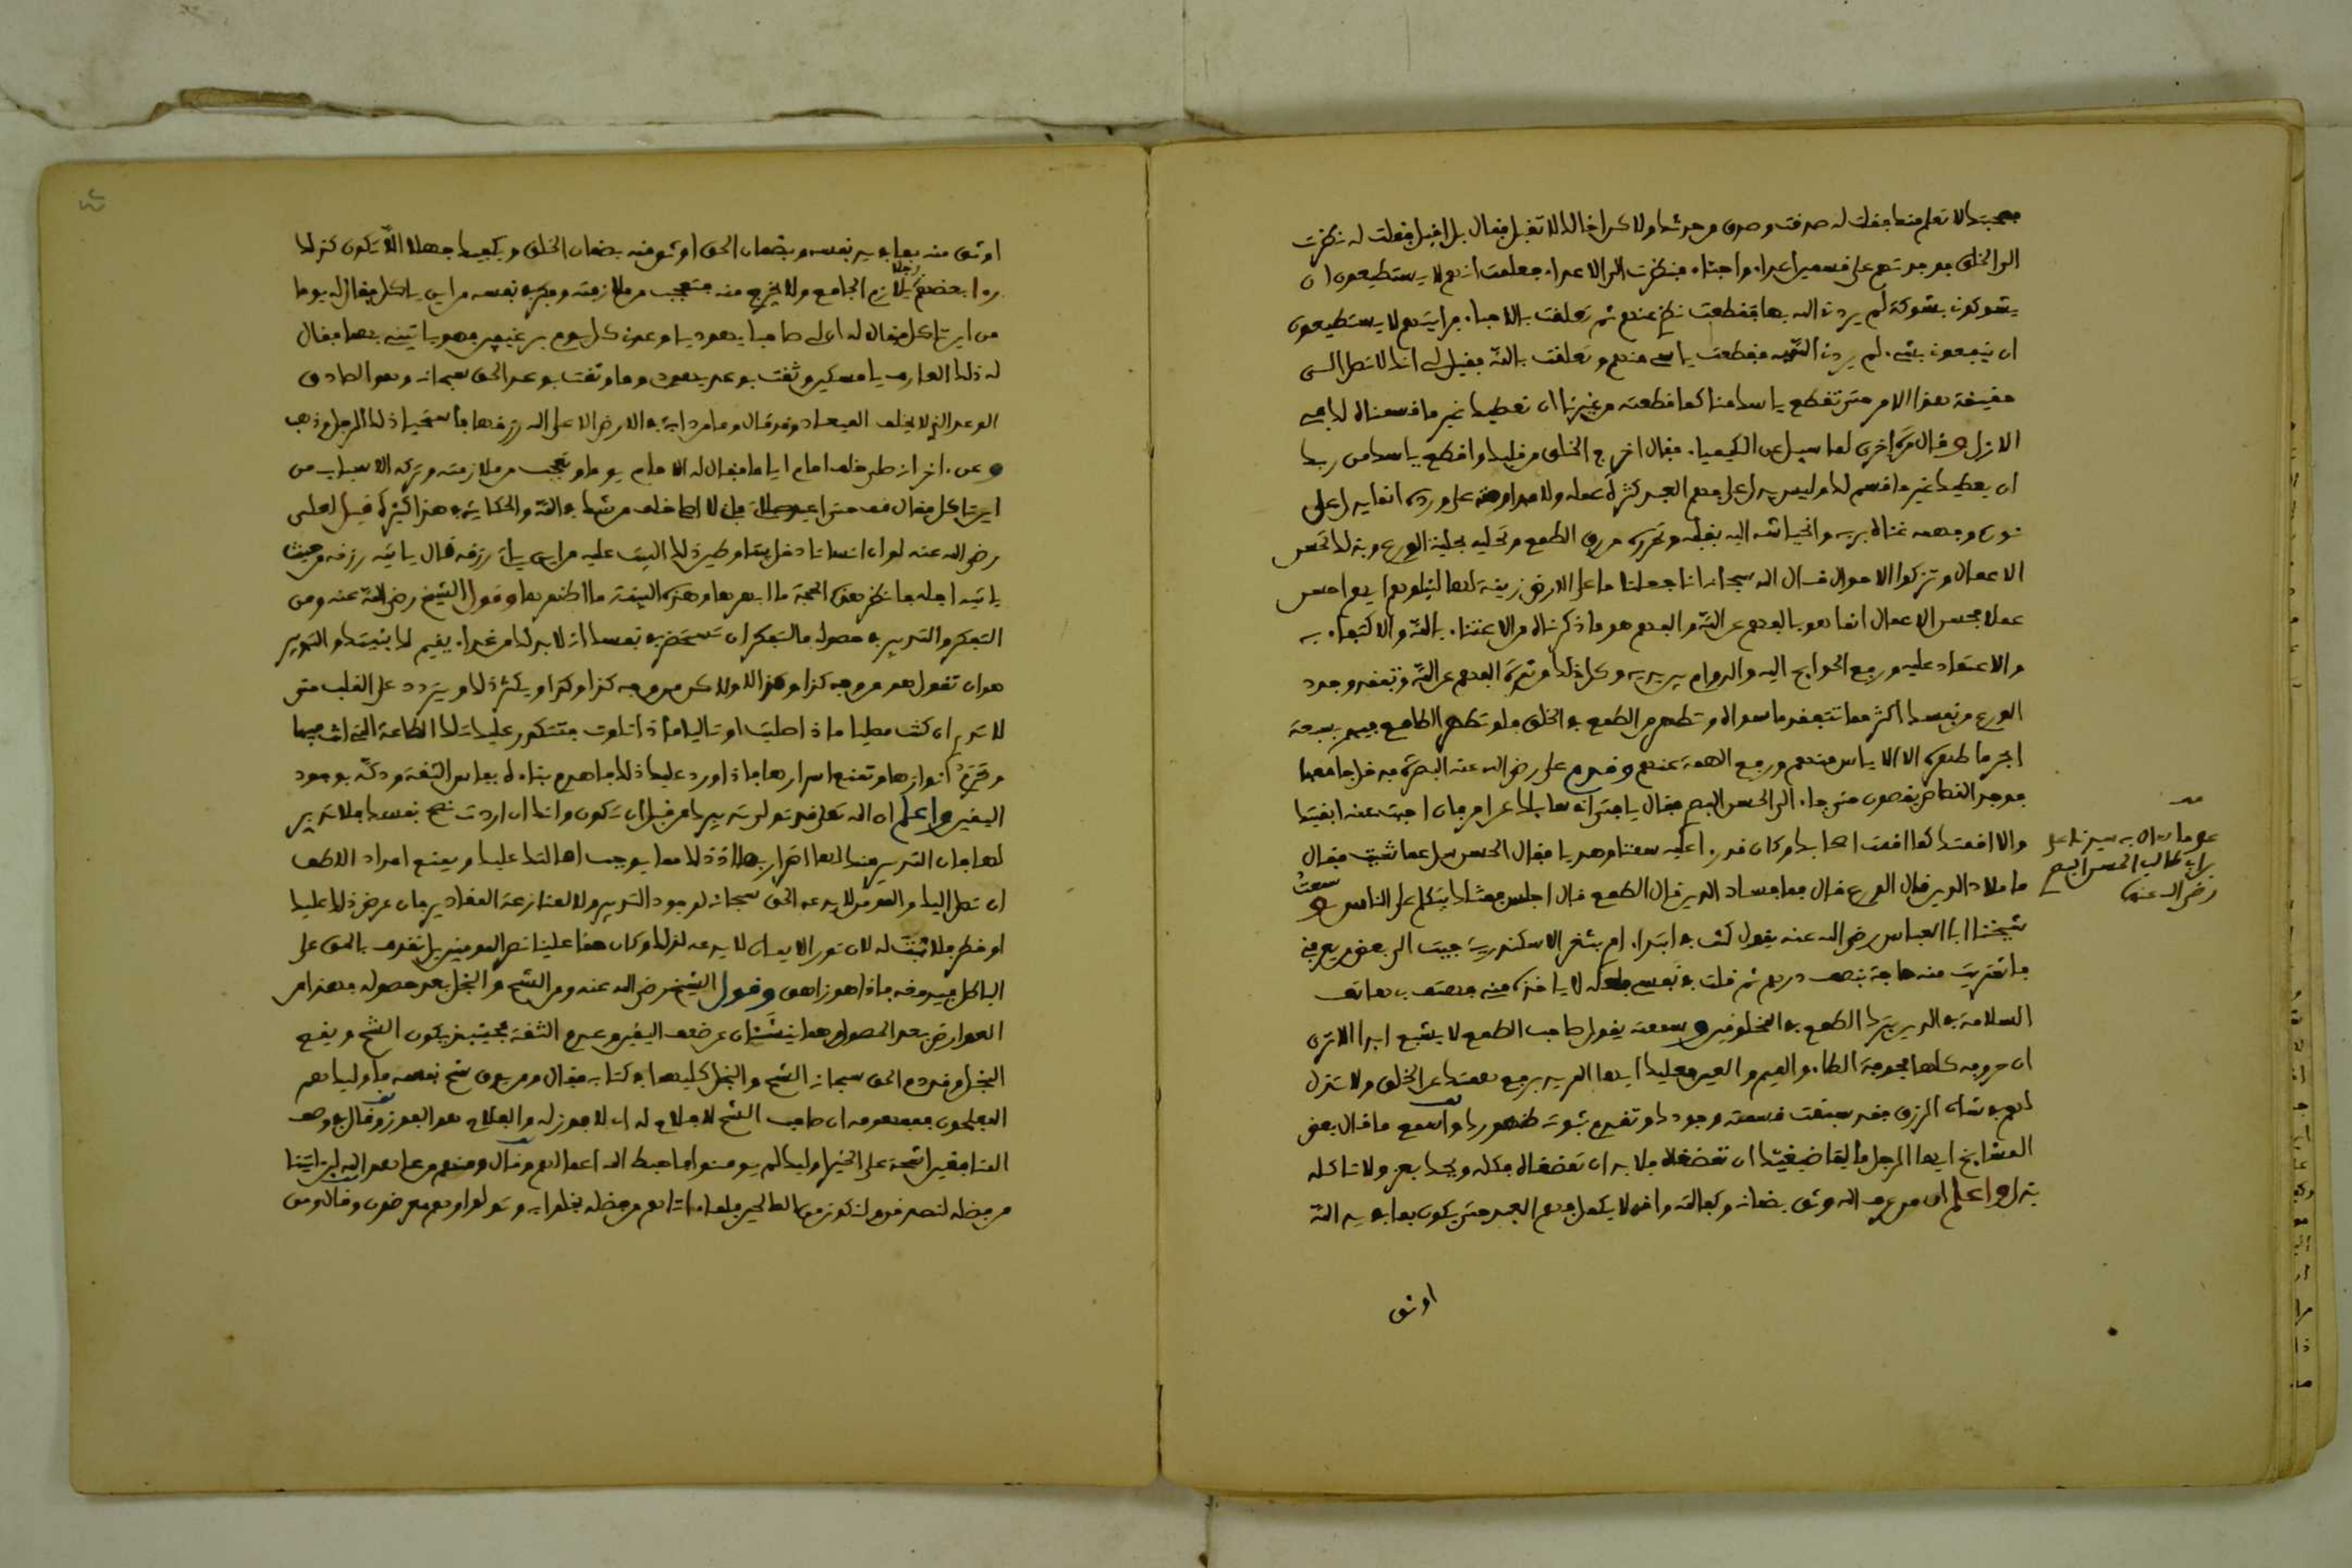 بصحبتك لا تعلم منها فقلت له صدقت وصدق من حدثك ولاكن اخالك لا تقبل فقال بل اقبل فقلت له نظرت
الى الخلق فوجدتهم على قسمين اعداء واحباء فنظرت الى الاعداء فعلمت انهم لا يستطيعون ان
يشوكوني بشوكة لم يردني الله بها فقطعت نظري عنهم ثم تعلقت بالاحباء فرايتهم لا يستطيعون
ان ينفعوني بشيء لم يردني الله به فقطعت ياسي منهم وتعلقت بالله فقيل لي انك لا تصل الى
حقيقة هذا الامر حتى تقطع ياسك منا كما قطعته من غيرنا ان نعطيك غير ما قسمناه لك في
الازل وقال مرة اخرى لما سيل عن الكيمياء فقال اخرج الخلق من قلبك واقطع ياسك من ربك
ان يعطيك غير ما قسم لك وليس يدل على فهم العبد كثرة عمله ولا مداومته على ورده انما يدل على
نوره وفهمه غناه بربه وانحياشه اليه بقلبه وتحرره من رق الطمع وتحليه بحلية الورع وبذلك تحسن
الاعمال وتزكوا الاحوال قال الله سبحانه انا جعلنا ما على الارض زينة لها لنبلوهم ايهم احسن
عملا فحسن الاعمال انما هو بالفهم عن الله والفهم هو ما ذكرناه من الاغتناء بالله والاكتفاء به
والاعتماد عليه ورفع الحوايج اليه والدوام بين يديه وكل ذلك من ثمرة الفهم عن الله وتفقد وجود
الورع من نفسك اكثر مما تتفقد ما سواه وتطهر من الطمع في الخلق فلو تطهر الطامع فيهم بسبعة
ابحر ما طهره الا الاياس منهم ورفع الهمة عنهم وقدم على رضي الله عنه البصرة فدخل جامعها
فوجد القصاص يقصون حتى جاء الى الحسن البصري فقال يا فتى انى سايلك عن امر فان اجبت عنه ابقيتك
والا اقمتك كما اقمت اصحابك وكان قد رءا عليه سمتا وهديا فقال الحسن سل عما شيت فقال
ما ملاك الدين فقال الورع قال فما فساد الدين قال الطمع قال اجلس فمثلك يتكلم على الناس وسمعت
شيخنا ابا العباس رضي الله عنه يقول كنت في ابتداء امري بثغر الاسكندرية جيت الى بعض من يعرفني
فاشتريت منه حاجة بنصف درهم ثم قلت في نفسي لعله لا ياخذه مني فهتف بي هاتف
السلامة في الدين بترك الطمع في المخلوقين وسمعته يقول صاحب الطمع لا يشبع ابدا الا ترى
ان حروفه كلها مجوفة الطاء والميم والعين فعليك ايها المريد برفع همتك عن الخلق ولا تذل
لهم في شان الرزق فقد سبقت قسمته وجودك وتقدم ثبوته ظهورك واسمع ما قال بعض
المشايخ ايها الرجل ما قدر لماضغيك ان تمضغاه فلا بد ان تمضغاه فكله ويحك بعز ولا تاكله
بذل واعلم ان من عرف الله وثق بضمانه وكفالته وانه لا يكمل فهم العبد حتى يكون بما في يد الله
على ما رءاه في سيدنا على
بن ابي طالب الحسن البصري
رضي الله عنهما
اوثق
اوثق منه بما في يد نفسه وبضمان الحق اوثق منه بضمان الخلق ويكفيك جهلا الا تكون كذلك
رءا بعضهم رجلا يلازم الجامع ولا يخرج منه فتعجب من ملازمته وفكر في نفسه من اين ياكل فقال له يوما
من اين تاكل فقال له ان لى صاحبا يهوديا وعدني كل يوم برغيفين فهو ياتيني بهما فقال
له ذلك العارف يا مسكين وثقت بوعد يهودي وما وثقت بوعد الحق سبحانه وهو الصادق
الوعد الذي لا يخلف الميعاد وقد قال وما من دابة في الارض الا على الله رزقها فاستحيا ذلك الرجل وذهب
وعن اخر انه صلى خلف امام اياما فقال له الامام يوما وتعجب من ملازمته وتركه الاسباب من
اين تاكل فقال قف حتى اعيد صلاتي فاني لا اصلى خلف من شك في الله والحكايات في هذا كثيرة قيل لعلى
رضي الله عنه لو ان انسانا دخل بيتا وطين ذلك البيت عليه من اين ياتي رزقه قال ياتيه رزقه من حيث
ياتيه اجله فانظر هذه الحجة ما ابهرها وهذه البينة ما اظهرها وقول الشيخ رضي الله عنه ومن
التفكر والتدبير في حصوله فالتفكر ان تستحضر في نفسك انه لا بد لك من غذاء يقيم لك بنيتك والتدبير
هو ان تقول هو من وجه كذا وكذا او لاكن من وجه كذا وكذا ويكثر ذلك ويتردد على القلب حتى
لا تدري ان كنت مصليا ماذا صليت او تاليا ماذا تلوت فتتكدر عليك تلك الطاعة التي انت فيها
وتحرم انوارها وتمنع اسرارها فاذا ورد عليك ذلك فاهدم بناءه بفاس الثقة ودكه بوجود
اليقين واعلم ان الله تعلى قد تولى تدبيرك من قبل ان تكون وانك ان اردت نصح نفسك فلا تدبر
لها فان التدبير منك لها اضرار بها اذ ذلك مما يوجب احالتك عليك ويمنع امداد اللطف
ان تصل اليك والمؤمن لا يدعه الحق سبحانه لوجود التدبير ولا لمنازعة المقادير فان عرض ذلك عليك
او خطر فلا ثبت له لان نور الايمان لا يدعه لذلك وكان حقا علينا نصر المومنين بل نقذف بالحق على
الباطل فيدمغه فاذا هو زاهق وقول الشيخ رضي الله عنه ومن الشح والبخل بعد حصوله فهذا من
العوارض بعد الحصول وهما ينشئان عن ضعف اليقين وعدم الثقة فحينئذ يكون الشح ويقع
البخل وقد ذم الحق سبحانه الشح والبخل كليهما في كتابه فقال ومن يوق شح نفسه فاوليك هم
المفلحون فمفهومه ان صاحب الشح لا فلاح له اي لا فوز له والفلاح هو الفوز وقال في وصف
المنافقين اشحة على الخير اوليك لم يومنوا فاحبط الله اعمالهم وقال ومنهم من عاهد الله لين اتينا
من فضله لنصدقن ولنكونن من الصالحين فلما اتاهم من فضله بخلوا به وتولوا وهم معرضون وقال ومن